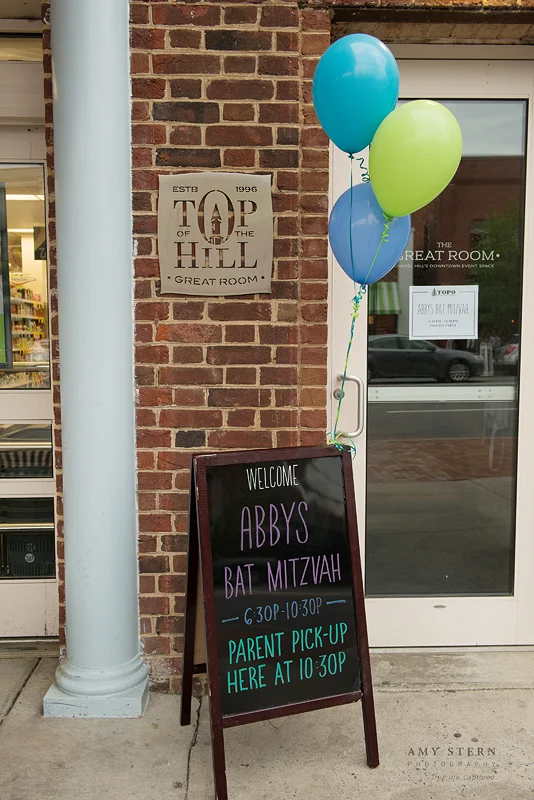 ESTB 1996
TOP
OF THE
HILL
• GREAT ROOM •
THE
GREAT ROOM•
CHAPEL HILL'S DOWNTOWN EVENT SPACE
TOPO
ABBYS BAT MITZVAH
WELCOME
ABBYS
BAT MITZVAH
— 6:30P-10:30P —
PARENT PICK-UP
HERE AT 10:30P
AMY STERN
PHOTOGRAPHY
True life. Captured.